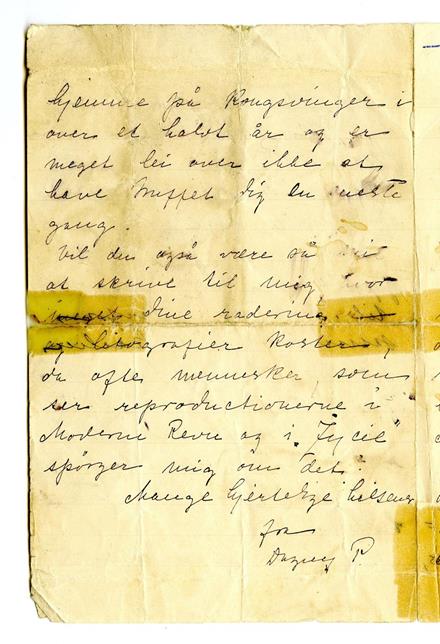 hjemme på Kongsvinger i
over et halvt år og er
meget lei over ikke at
have truffet Dig en eneste
gang.
Vil du også være så
at skrive til mig hvor
meget dine radering
og litografier koster,
da ofte mennesker som
ser reproductionerne i
Moderni Revu og i "Zycie"
spørger mig om det.
Mange hjertelige hilsener
fra
Dagny P.